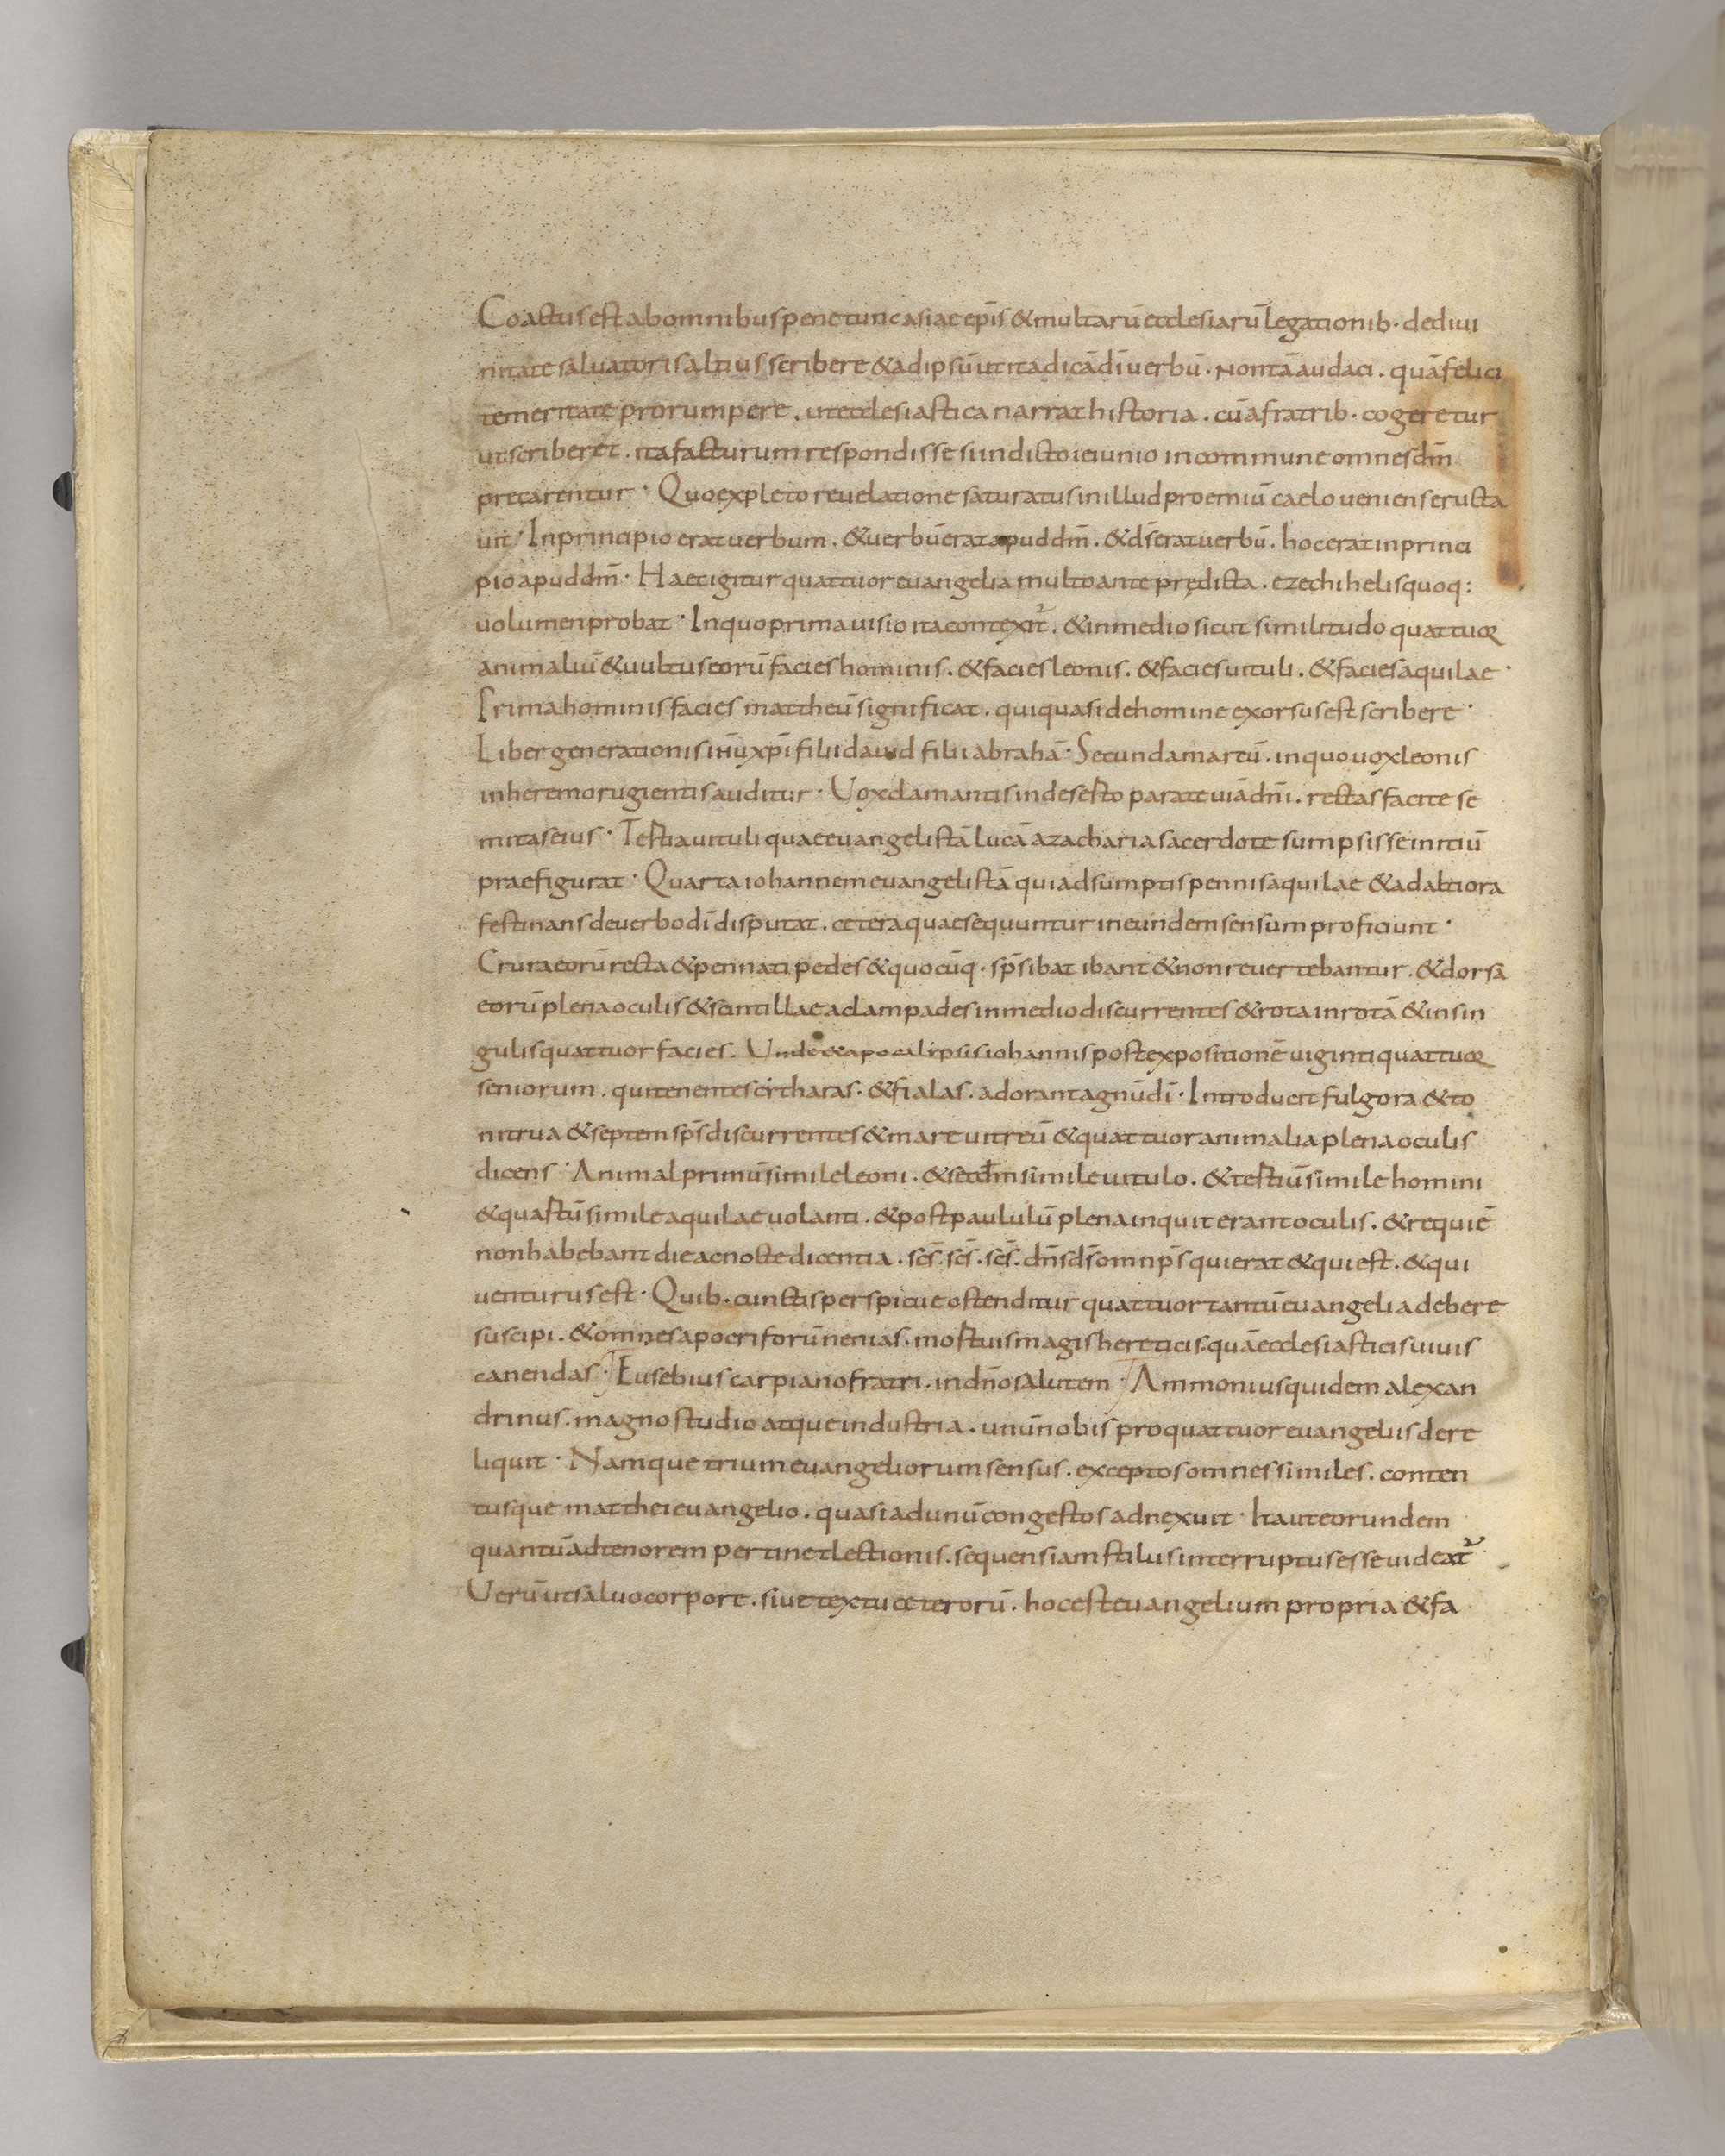 Coactus est ab omnibus pene tunc asiae ep̄is & multarū ecclesiarū legationib· de diui
nitate saluatoris altius scribere & ad ipsū ut ita dicā dī uerbū · non tā audaci . quā felici
temeritate prorumpere . ut ecclesiastica narrat historia . cū a fratrib· cogeretur
ut scriberet . ita facturum respondisse si indicto ieiunio in commune omnes dm̄
precarentur · Quo expleto reuelatione saturatus in illud proemiū caelo ueniens eructa
uit · In principio erat uerbum . & uerbū erat apud dm̄ . & ds̄ erat uerbū . hoc erat in princi
pio apud dm̄ · Haec igitur quattuor euangelia multo ante prędicta . ezechihelis quoq:
uolumen probat · In quo prima uisio ita contexit᷑ . & in medio sicut similitudo quattuor
animaliū & uultus eorū facies hominis . & facies leonis . & facies uituli . & facies aquilae ·
Prima hominis facies mattheū significat . qui quasi de homine exorsus est scribere ·
Liber generationis ihū xpī filii dauid filii abrahā · Secunda marcū . in quo uox leonis
in heremo rugientis auditur · Uox clamantis in deserto parate uiā dnī . rectas facite se
mitas eius · Tertia uituli quae euangelistā lucā a zacharia sacerdote sumpsisse initiū
praefigurat · Quarta iohannem euangelistā qui adsumptis pennis aquilae & ad altiora
festinans de uerbo dī disputat . cetera quae sequuntur in eundem sensum proficiunt ·
Crura eorū recta & pennati pedes & quocūq · sp̄s ibat ibant & non reuertebantur . & dorsa
eorū plena oculis & scintillae ac lampades in medio discurrentes & rota in rotā & in sin
gulis quattuor facies . Unde & apocalipsis iohannis post expositionē uiginti quattuor
seniorum . qui tenentes citharas · & fialas . adorant agnū dī · Introducit fulgora & to
nitrua & septem sp̄s discurrentes & mare uitreū & quattuor animalia plena oculis
dicens · Animal primū simile leoni . & secdm̄ simile uitulo . & tertiū simile homini
& quartū simile aquilae uolanti . & post paululū plena inquit erant oculis . & requiē
non habebant die ac nocte dicentia . scs̄ . scs̄ . scs̄ . dn̄s ds̄ omnp̄s qui erat & qui est . & qui
uenturus est · Quib· cunctis perspicue ostenditur quattuor tantū euangelia debere
suscipi . & omnes apocriforū nenias . mortuis magis hereticis · quā ecclesiasticis uiuis
canendas · Eusebius carpiano fratri . in dn̄o salutem · Ammonius quidem alexan
drinus . magno studio atque industria . unū nobis pro quattuor euangeliis dere
liquit · Namque trium euangeliorum sensus . exceptos omnes similes . conten
tusque matthei euangelio . quasi ad unū congestos adnexuit · Ita ut eorundem
quantū ad tenorem pertinet lectionis . sequens iam stilus interruptus esse uideat᷑
Uerū ut saluo corpore . siue textu ceterorū . hoc est euangelium propria & fa